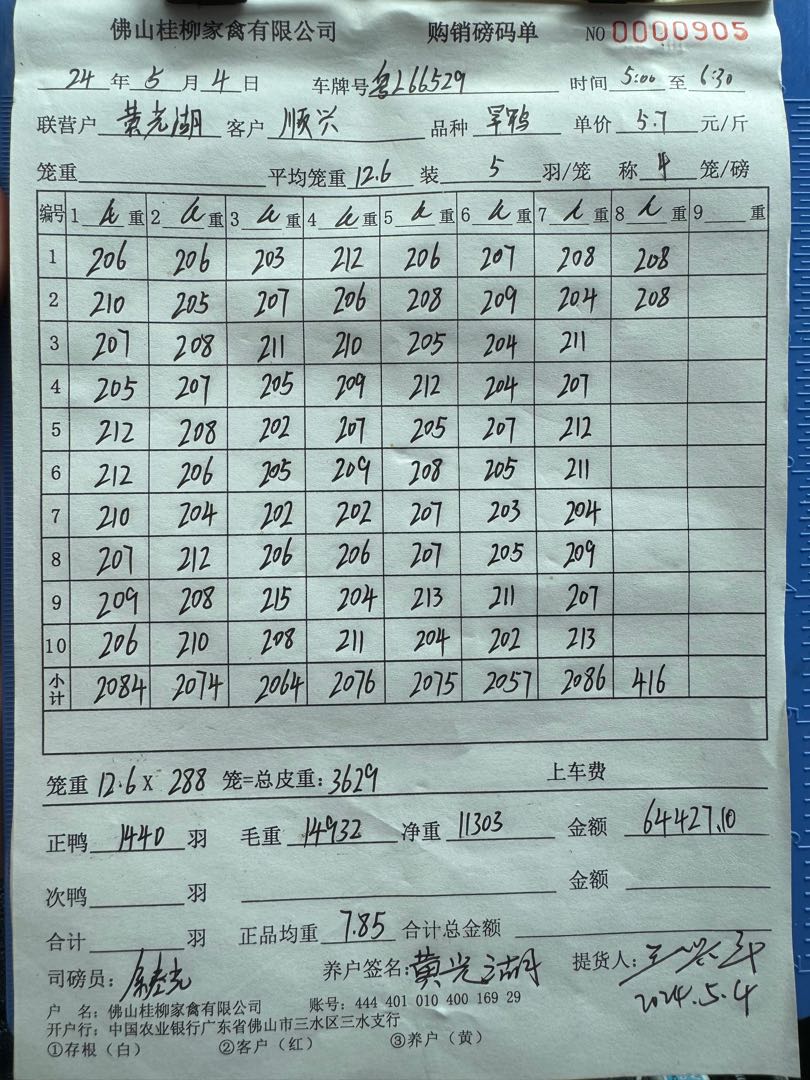 佛山桂柳家禽有限公司 购销磅码单 NO 0000905
24 年 5 月 4 日 车牌号 鲁L66529 时间 5:00 至 6:30
联营户 黄光湖 客户 顺兴 品种 旱鸭 单价 5.7 元/斤
笼重 平均笼重 12.6 装 5 羽/笼 称 4 笼/磅
编号 1 重 2 重 3 重 4 重 5 重 6 重 7 重 8 重 9 重
1 206 206 203 212 206 207 208 208
2 210 205 207 206 208 209 204 208
3 207 208 211 210 205 204 211
4 205 207 205 209 212 204 207
5 212 208 202 207 205 207 212
6 212 206 205 209 208 205 211
7 210 204 202 202 207 203 204
8 207 212 206 206 207 205 209
9 209 208 215 204 213 211 207
10 206 210 208 211 204 202 213
小计 2084 2074 2064 2076 2075 2057 2086 416
笼重 12.6 X 288 笼=总皮重: 3629 上车费
正鸭 1440 羽 毛重 14932 净重 11303 金额 64427.10
次鸭 羽 金额
合计 羽 正品均重 7.85 合计总金额
司磅员: 养户签名: 黄光湖 提货人:
2024.5.4
户 名: 佛山桂柳家禽有限公司 账号: 444 401 010 400 169 29
开户行: 中国农业银行广东省佛山市三水区三水支行
①存根（白） ②客户（红） ③养户（黄）